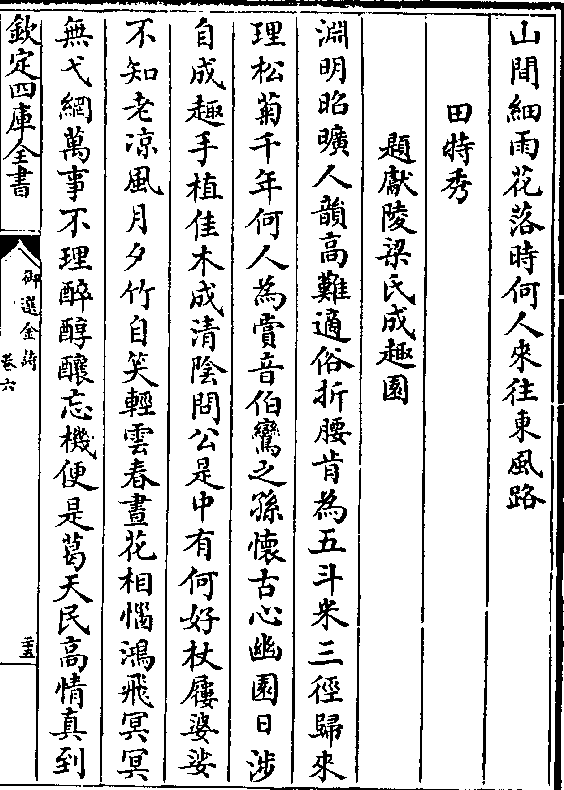 山間細雨花落時何人來往東風路
田特秀
題獻陵梁氏成趣園
淵明昭曠人韻高難適俗折腰肯為五斗米三徑歸來
理松菊千年何人為賞音伯鸞之孫懷古心幽園日涉
自成趣手植佳木成清陰問公是中有何好杖屨婆娑
不知老凉風月夕竹自笑輕雲春晝花相惱鴻飛冥冥
無弋網萬事不理醉醇醲忘機便是葛天民高情真到
欽定四庫全書
御選金詩
卷六
二十五